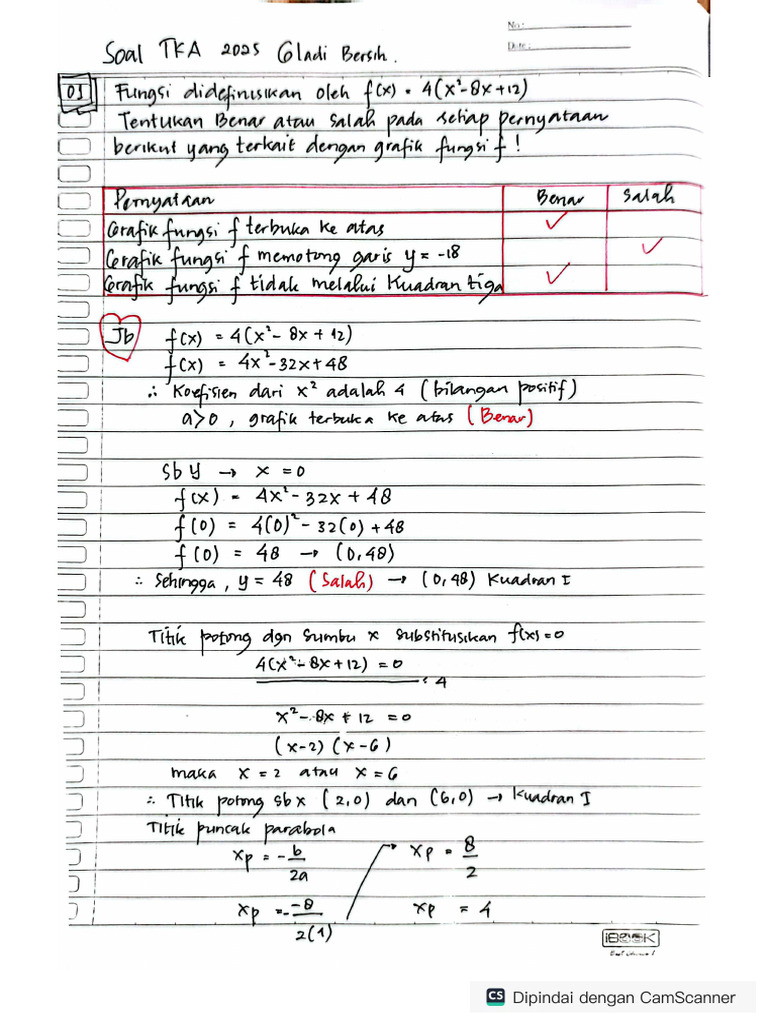 No.:
Date:
Soal TKA 2025 Gladi Bersih.
01 Fungsi didefinisikan oleh f(x) = 4(x²-8x+12)
Tentukan Benar atau Salah pada setiap pernyataan
berikut yang terkait dengan grafik fungsi f!
Pernyataan Benar Salah
Grafik fungsi f terbuka ke atas ✓
Grafik fungsi f memotong garis y = -18 ✓
Grafik fungsi f tidak melalui Kuadran tiga ✓
Jb f(x) = 4(x²- 8x + 12)
f(x) = 4x²-32x+48
∴ Koefisien dari x² adalah 4 (bilangan positif)
a>0, grafik terbuka ke atas (Benar)
Sb y → x = 0
f(x) = 4x²- 32x + 48
f(0) = 4(0)²- 32(0) + 48
f(0) = 48 → (0,48)
∴ Sehingga, y = 48 (Salah) → (0,48) Kuadran I
Titik potong dgn Sumbu x substitusikan f(x)=0
4(x²- 8x + 12) = 0
: 4
x²- 8x + 12 = 0
(x-2) (x-6)
maka x = 2 atau x = 6
∴ Titik potong sb x (2,0) dan (6,0) → Kuadran I
Titik puncak parabola
xp = -b/2a
xp = - -8/2(1)
xp = 8/2
xp = 4
iBOOK
CS Dipindai dengan CamScanner